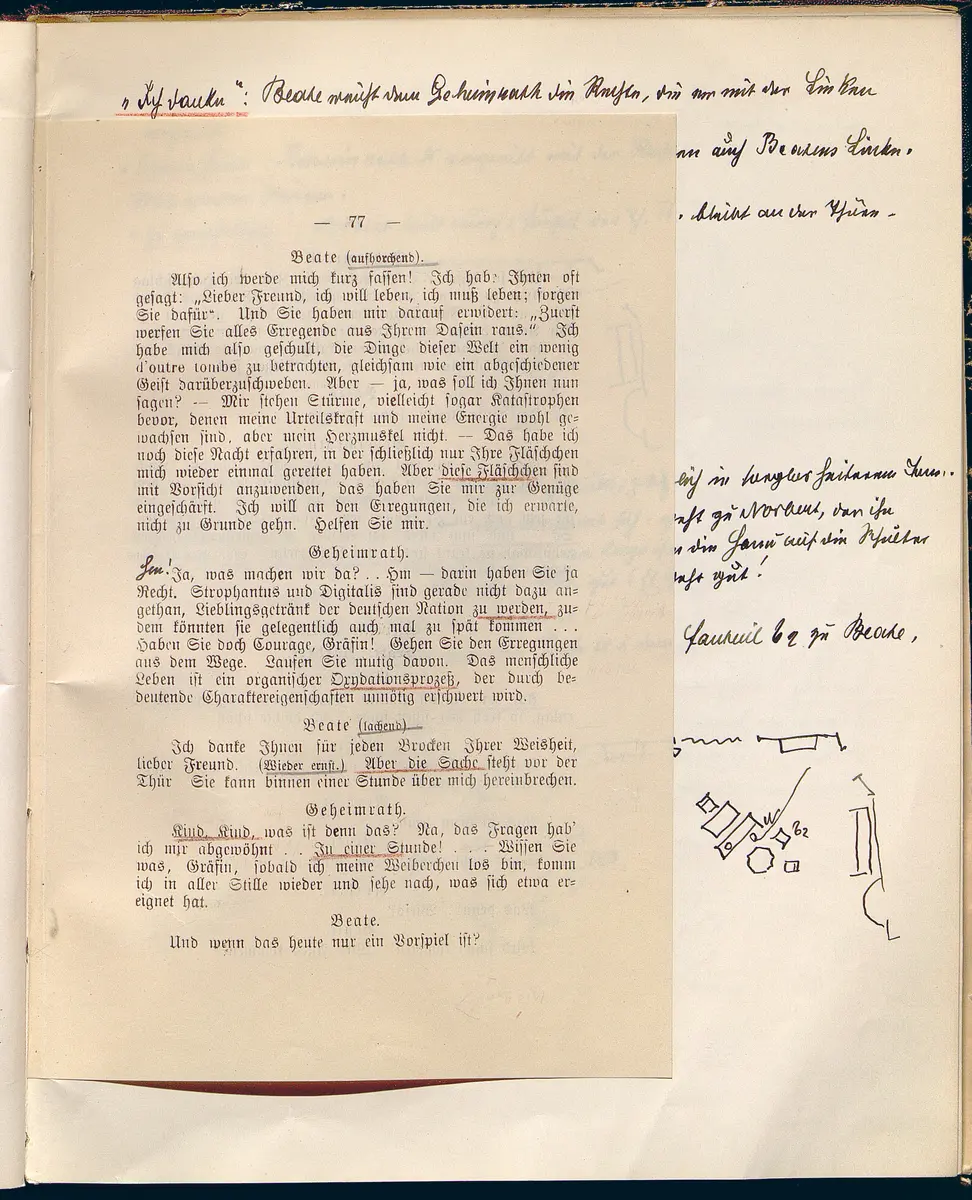 „Ich danke": Beate reicht dem Geheimrath die Rechte, die er mit der Linken
auch Beatens Linke.
bleibt an der Thüre –
— 77 —
Beate (aufhorchend).
Also ich werde mich kurz fassen! Ich habe Ihnen oft
gesagt: „Lieber Freund, ich will leben, ich muß leben; sorgen
Sie dafür“. Und Sie haben mir darauf erwidert: „Zuerst
werfen Sie alles Erregende aus Ihrem Dasein raus.“ Ich
habe mich also geschult, die Dinge dieser Welt ein wenig
d'outre tombe zu betrachten, gleichsam wie ein abgeschiedener
Geist darüberzuschweben. Aber — ja, was soll ich Ihnen nun
sagen? — Mir stehen Stürme, vielleicht sogar Katastrophen
bevor, denen meine Urteilskraft und meine Energie wohl ge-
wachsen sind, aber mein Herzmuskel nicht. — Das habe ich
noch diese Nacht erfahren, in der schließlich nur Ihre Fläschchen
mich wieder einmal gerettet haben. Aber diese Fläschchen sind
mit Vorsicht anzuwenden, das haben Sie mir zur Genüge
eingeschärft. Ich will an den Erregungen, die ich erwarte,
nicht zu Grunde gehn. Helfen Sie mir.
Geheimrath.
Hm! Ja, was machen wir da? . . Hm — darin haben Sie ja
Recht. Strophantus und Digitalis sind gerade nicht dazu an-
gethan, Lieblingsgetränk der deutschen Nation zu werden, zu-
dem könnten sie gelegentlich auch mal zu spät kommen . . .
Haben Sie doch Courage, Gräfin! Gehen Sie den Erregungen
aus dem Wege. Laufen Sie mutig davon. Das menschliche
Leben ist ein organischer Oxydationsprozeß, der durch be-
deutende Charaktereigenschaften unnötig erschwert wird.
Beate (lachend).
Ich danke Ihnen für jeden Brocken Ihrer Weisheit,
lieber Freund. (Wieder ernst.) Aber die Sache steht vor der
Thür Sie kann binnen einer Stunde über mich hereinbrechen.
Geheimrath.
Kind, Kind, was ist denn das? Na, das Fragen hab'
ich mir abgewöhnt . . In einer Stunde! . . . Wissen Sie
was, Gräfin, sobald ich meine Weiberchen los bin, komm
ich in aller Stille wieder und sehe nach, was sich etwa er-
eignet hat.
Beate.
Und wenn das heute nur ein Vorspiel ist?
lich in sorglos heiterem
geht zu Norbert, der ihn
die Hand auf die Schulter
sehr gut!
Fauteuil b2 zu Beate,
b2